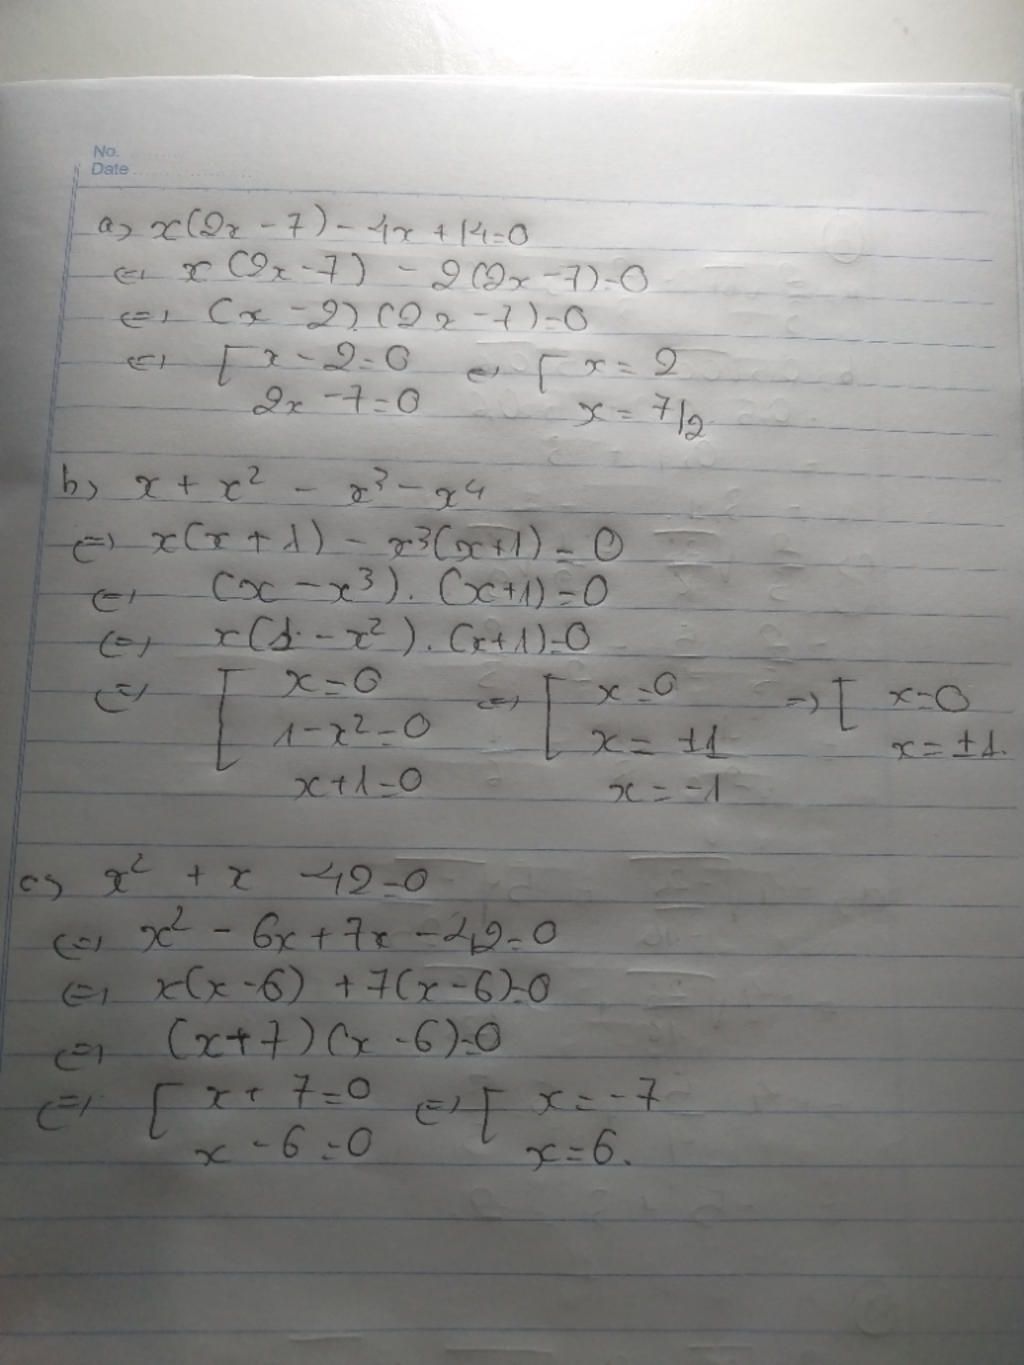 No.
Date
a) x(2x - 7) - 4x + 14 = 0
<=> x(2x - 7) - 2(2x - 7) = 0
<=> (x - 2)(2x - 7) = 0
<=> [ x - 2 = 0 <=> [ x = 2
2x - 7 = 0 x = 7/2
b) x + x² - x³ - x⁴
<=> x(x + 1) - x³(x + 1) = 0
<=> (x - x³) . (x + 1) = 0
<=> x(1 - x²) . (x + 1) = 0
<=> [ x = 0 <=> [ x = 0 => [ x = 0
1 - x² = 0 x = ±1 x = ±1.
x + 1 = 0 x = -1
c) x² + x - 42 = 0
<=> x² - 6x + 7x - 42 = 0
<=> x(x - 6) + 7(x - 6) = 0
<=> (x + 7)(x - 6) = 0
<=> [ x + 7 = 0 <=> [ x = -7
x - 6 = 0 x = 6.